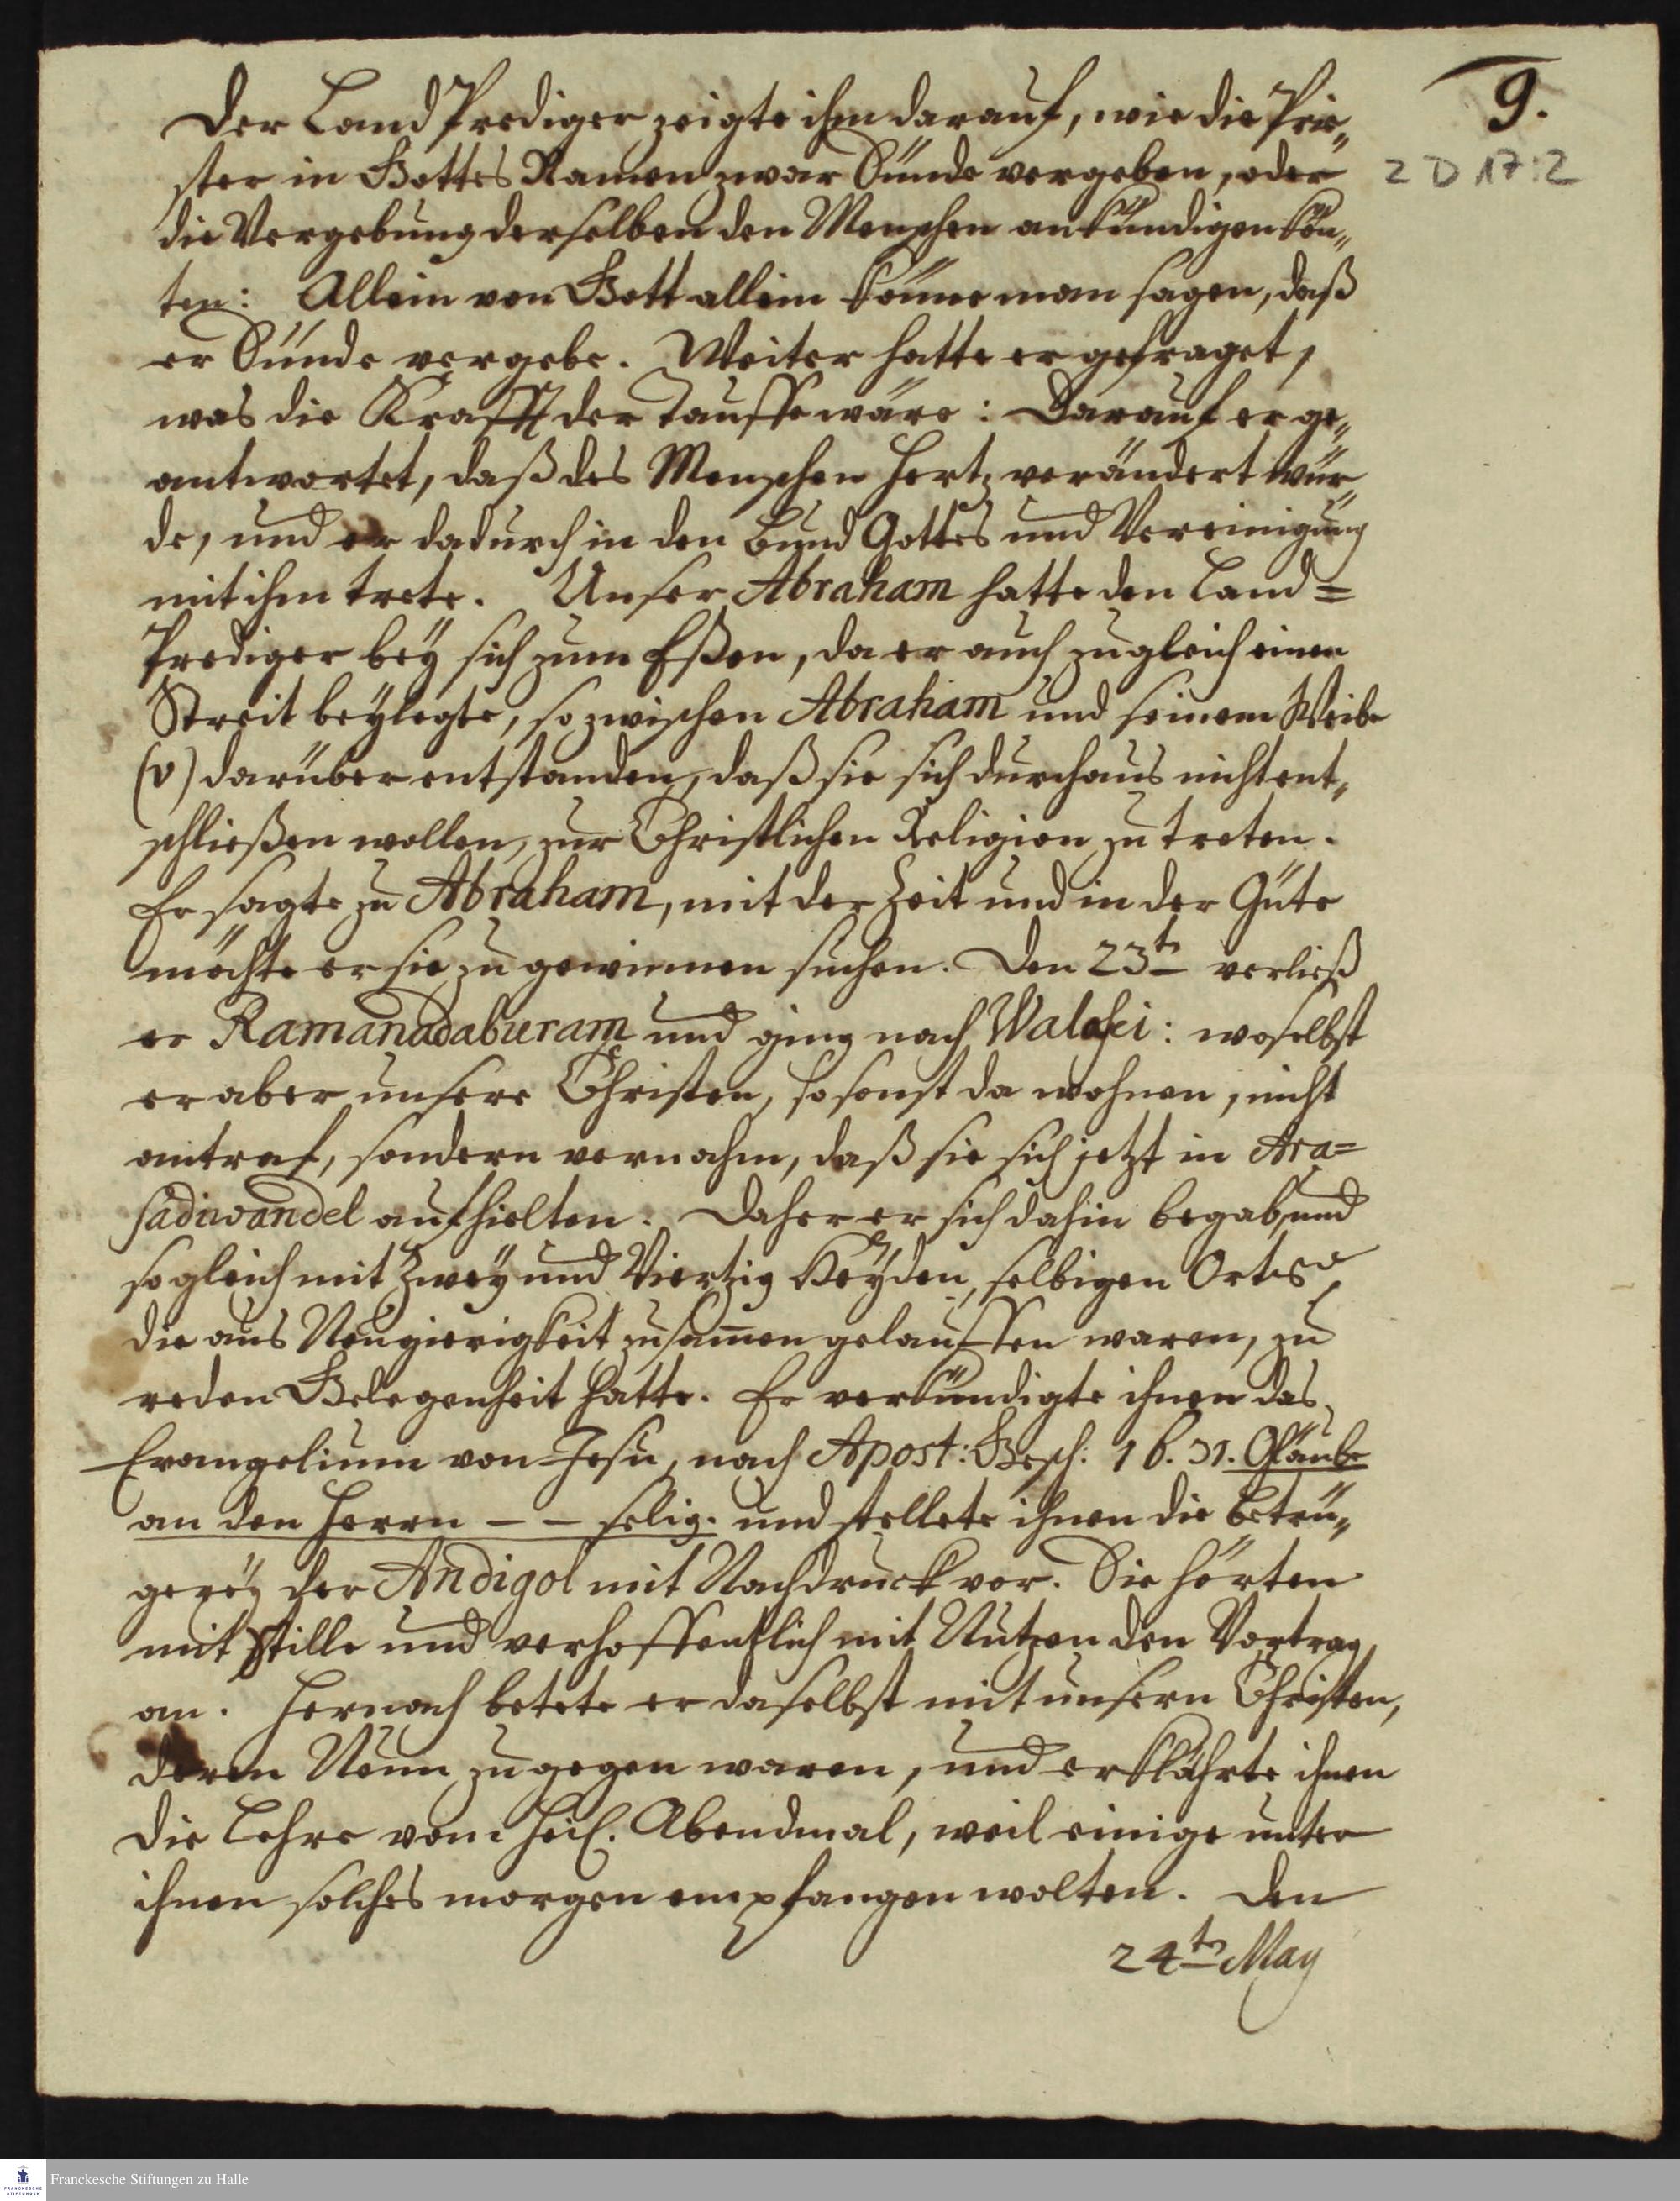 9.
2 D 17:2
Der Land Prediger zeigte ihm darauf, wie die Prie„
ster in Gottes Namen zwar Sünde vergeben, oder
die Vergebung derselben den Menschen ankündigen kön„
ten: Allein von Gott allein könne man sagen, daß
er Sünde vergebe. Weiter hatte er gefraget,
was die Krafft der Tauffe wäre: Darauf er ge„
antwortet, daß des Menschen Hertz verändert wür„
de, und er dadurch in den Bund Gottes und Vereinigung
mit ihm trete. Unser Abraham hatte den Land=
Prediger bey sich zum Eßen, da er auch zugleich einen
Streit beylegte, so zwischen Abraham und seinem Weibe
(v) darüber entstanden, daß sie sich durchaus nicht ent„
schließen wollen, zur Christlichen Religion zu treten.
Er sagte zu Abraham, mit der Zeit und in der Güte
möchte er sie zu gewinnen suchen. Den 23t verließ
er Ramanadaburam und ging nach : woselbst
er aber unsere Christen, so sonst da wohnen, nicht
antraf, sondern vernahm, daß sie sich jetzt in Ara=
sadiwandel aufhielten. Daher er sich dahin begab, und
sogleich mit Zwey und Viertzig Heyden, selbigen Ortes
die aus Neugierigkeit zusam̄en gelauffen waren, zu
reden Gelegenheit hatte. Er verkündigte ihnen das
Evangelium von Jesu, nach Apost: Gesch: 16. 31. Gläube
an den Herrn - - selig. und stellete ihnen die Betrü„
gerey der Andigol mit Nachdruck vor. Sie hörten
mit Stille und verhoffentlich mit Nutzen den Vortrag
an. Hernach betete er daselbst mit unsern Christen,
deren Neun zugegen waren, und erklährte ihnen
die Lehre vom Heil. Abendmal, weil einige unter
ihnen solches morgen empfangen wolten. Den
24t May
Franckesche Stiftungen zu Halle